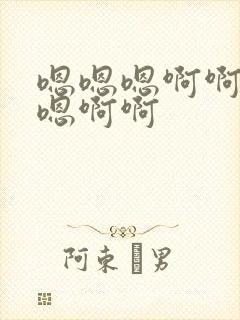 嗯嗯嗯啊啊
嗯啊啊
阿束 男